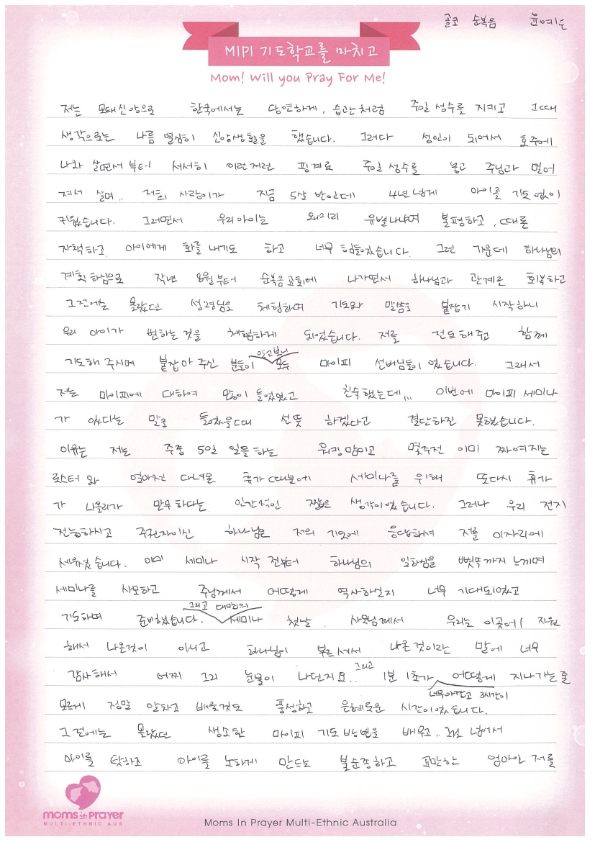 골코 순복음 윤예은
MIPI 기도학교를 마치고
Mom! Will you Pray For Me!
저는 모태신앙으로 한국에서는 당연하게, 습관처럼 주일 성수를 지키고 그때
생각으로는 나름 열심히 신앙생활을 했습니다. 그러다 성인이 되어서 호주에
나와 살면서부터 서서히 이런저런 핑계로 주일 성수를 놓고 주님과 멀어
져서 살며.. 저희 사랑이가 지금 5살 반인데 4년 넘게 아이를 기도 없이
키웠습니다. 그러면서 우리아이는 왜이리 유별나냐며 불평하고, 때론
자책하고 아이에게 화를 내기도 하고 너무 힘들었습니다. 그런 가운데 하나님의
계획하심으로 작년 8월부터 순복음교회에 나가면서 하나님과 관계를 회복하고
그전에는 몰랐던 성령님도 체험하며 기도와 말씀을 붙잡기 시작하니
우리 아이가 변하는 것을 체험하게 되었습니다. 저를 전도해주고 함께
기도해 주시며 붙잡아 주신 분들이 알고보니 모두 마이피 선배님들이 었습니다. 그래서
저는 마이피에 대하여 많이 들었었고 친숙했는데,,, 이번에 마이피 세미나
가 있다는 말을 들었을때 선뜻 하겠다고 결단하진 못했습니다.
이유는 저는 주중 5일 일을하는 워킹맘이고 몇주전 이미 짜여지는
로스터 와 얼마전 다녀온 휴가 때문에 세미나를 위해 또다시 휴가
가 나올리가 만무하다는 인간적인 짧은 생각이었습니다. 그러나 우리 전지
전능하시고 주권자이신 하나님은 저의 기도에 응답하셔 저를 이자리에
세우셨습니다. 이미 세미나 시작 전부터 하나님의 일하심을 뼛속까지 느끼며
세미나를 사모하고 주님께서 어떻게 역사하실지 너무 기대되었고
기도하며 준비했습니다. 그리고 대망의 세미나 첫날. 사모님께서 우리는 이곳에 자원
해서 나온것이 아니고 하나님이 부르셔서 나온 것이란 말에 너무
감사해서 어찌 그리 눈물이 나던지요.. 그리고 1분 1초가 어떻게 지나가는줄
모르게 너무아깝고 3시간이 정말 알차고 배울것도 풍성하고 은혜로운 시간이었습니다.
그 전에는 몰랐던 생소한 마이피 기도 방법을 배우고..
아이를 탓하고 아이를 노하게 만드는 불순종하고 교만한 엄마인 저를
moms in prayer
MULTI-ETHNIC AUS
Moms In Prayer Multi-Ethnic Australia